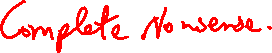 Complete Nonsense.